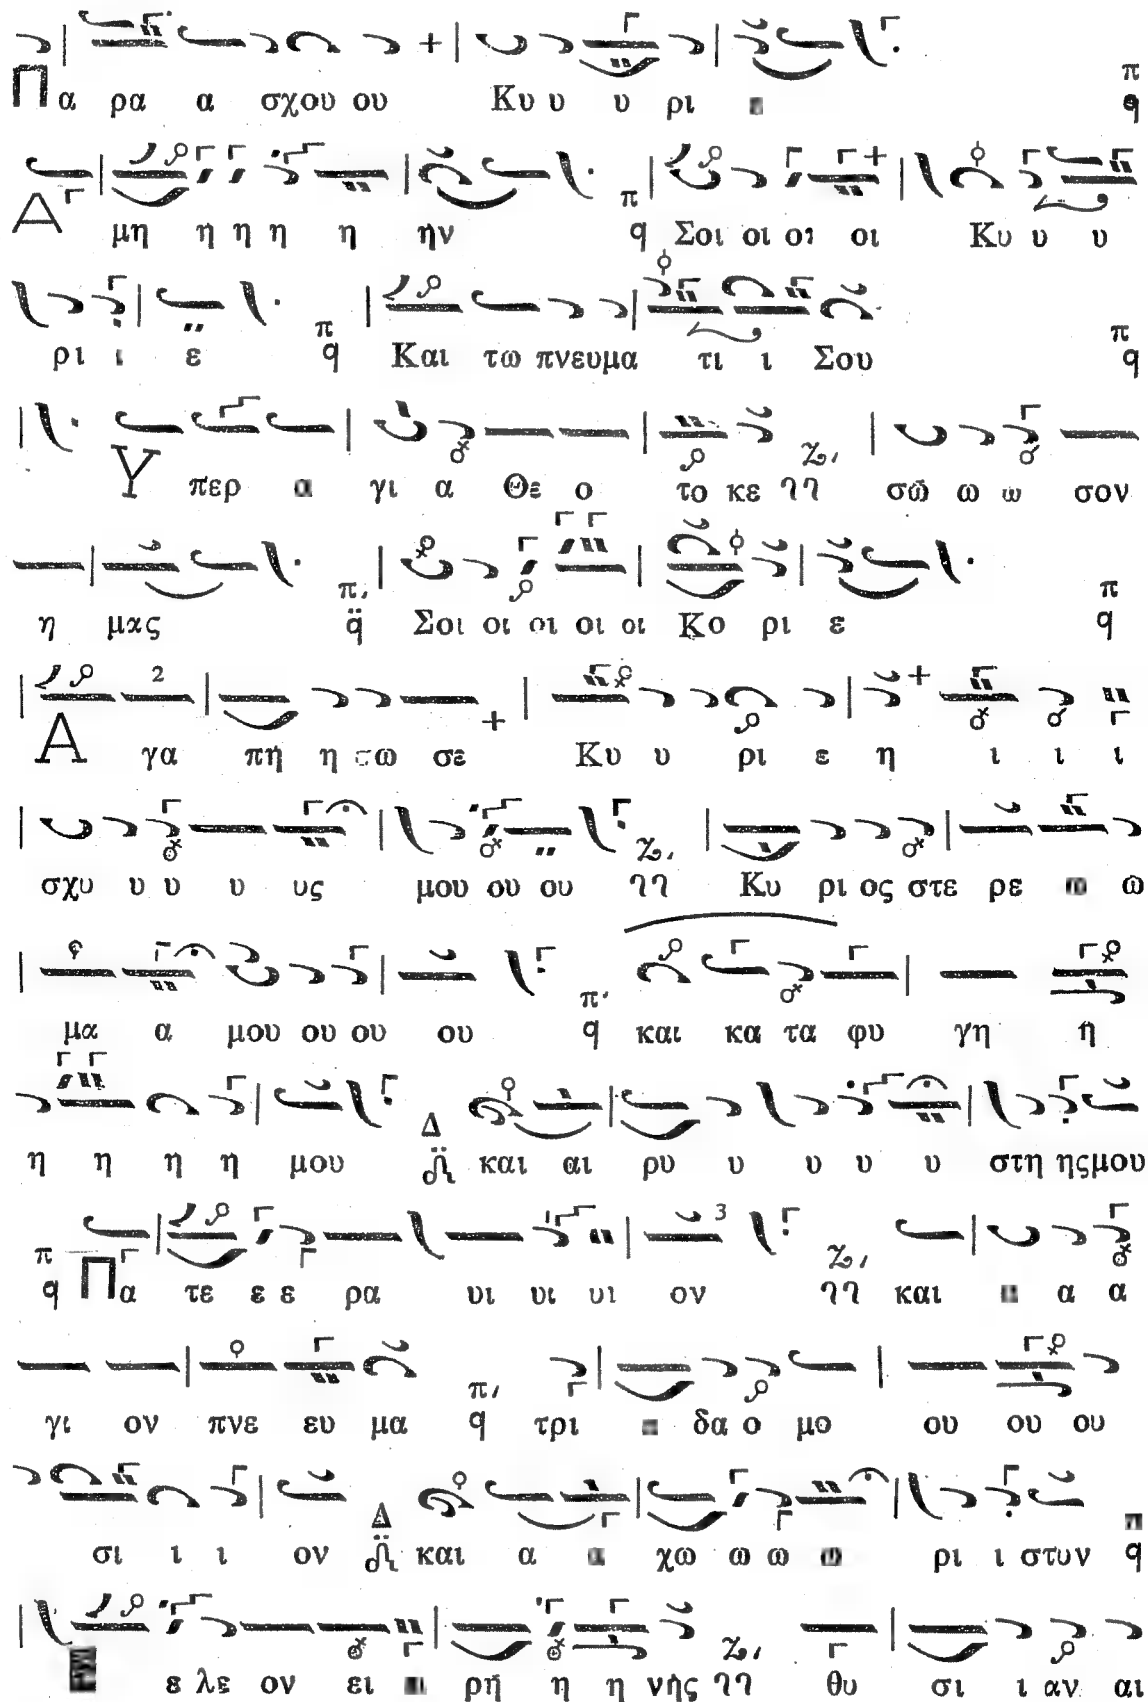 Πα ρα α σχου ου Κυ υ υ ρι π q
Α μη η η η η ην π q Σοι οι οι οι Κυ υ υ
ρι ι ε π q Και τω πνευμα τι ι Σου π q
Υ περ α γι α Θε ο το κε σω ω ω σον
η μας π q Σοι οι οι οι οι Κο ρι ε π q
Α γα πη η σω σε Κυ υ ρι ε η ι ι ι
σχυ υ υ υ υς μου ου ου Κυ ρι ος στε ρε ω
μα α μου ου ου ου π q και κα τα φυ γη η
η η η η μου Δ και αι ρυ υ υ υ υ στη ης μου
π q Πα τε ε ε ρα υι υι υι ον και α α
γι ον πνε ευ μα π q τρι δα ο μο ου ου ου
σι ι ι ον Δ και α χω ω ω ρι ι στυν q
ε λε ον ει ρη η η νης θυ σι ι αν αι